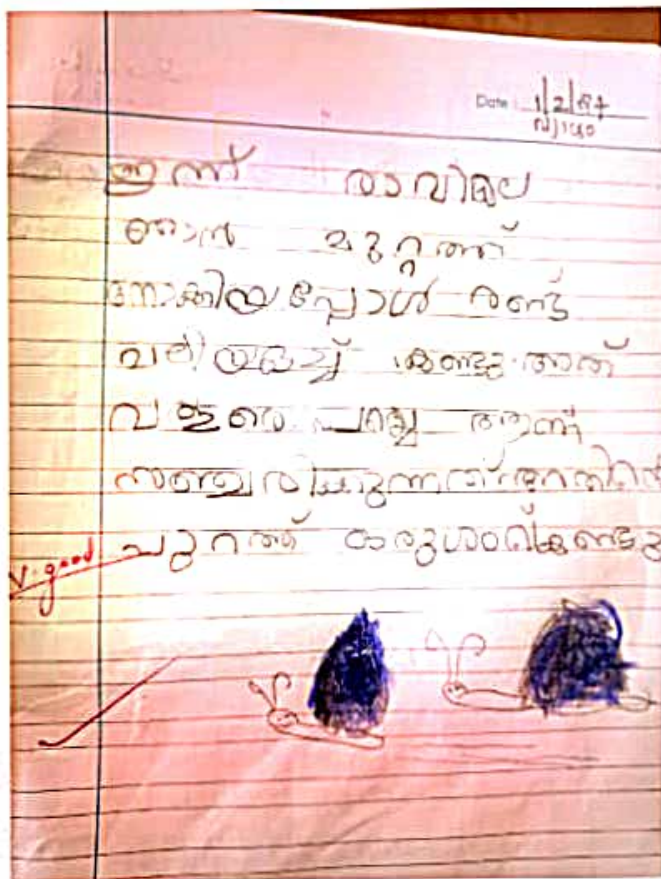 Date : 1/2/24
വ്യാഴം
ഇന്ന് രാവിലെ
ഞാൻ മുറ്റത്ത്
നോക്കിയപ്പോൾ രണ്ട്
കണ്ടു. അത്
വളരെ ആണ്
സഞ്ചരിക്കുന്നത്. അതിന്റെ
പുറത്ത് ഒരു ശംഖ് കണ്ടു
V. good